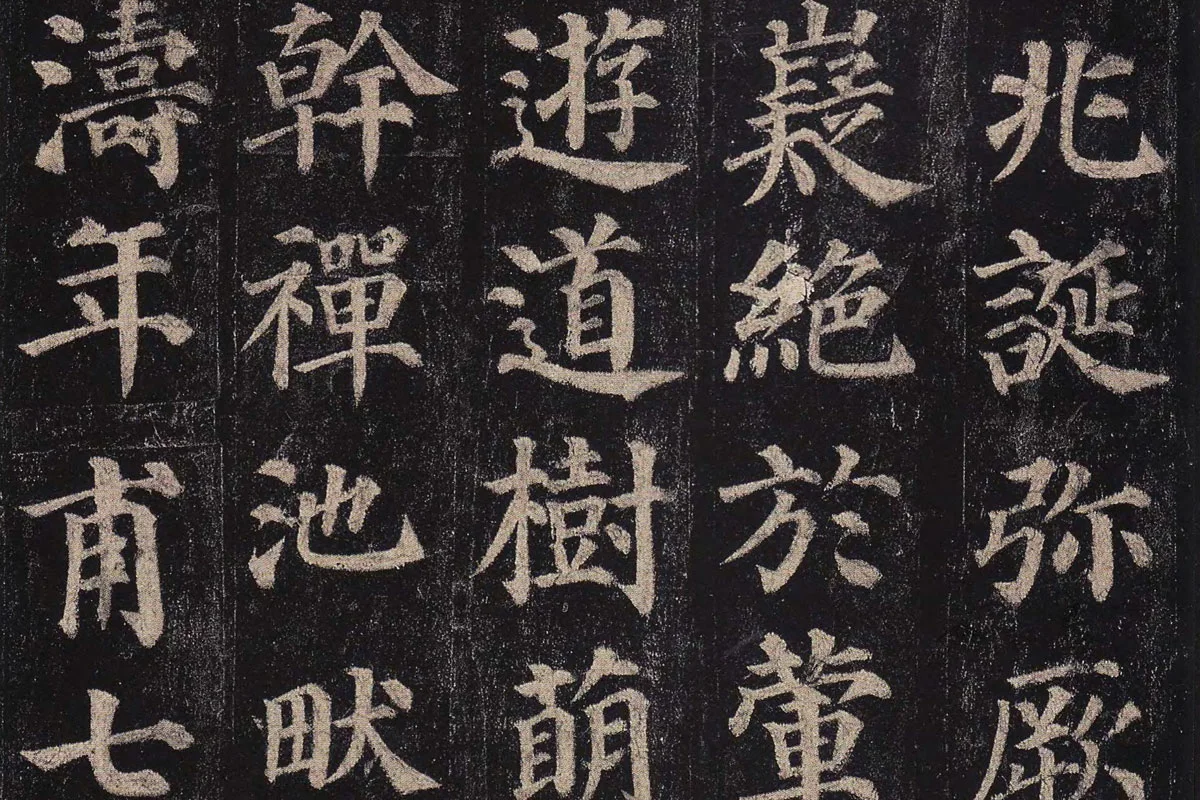 兆誕弥厥
嶷絶於葷
遊道樹萌
幹禪池畎
濤年甫七